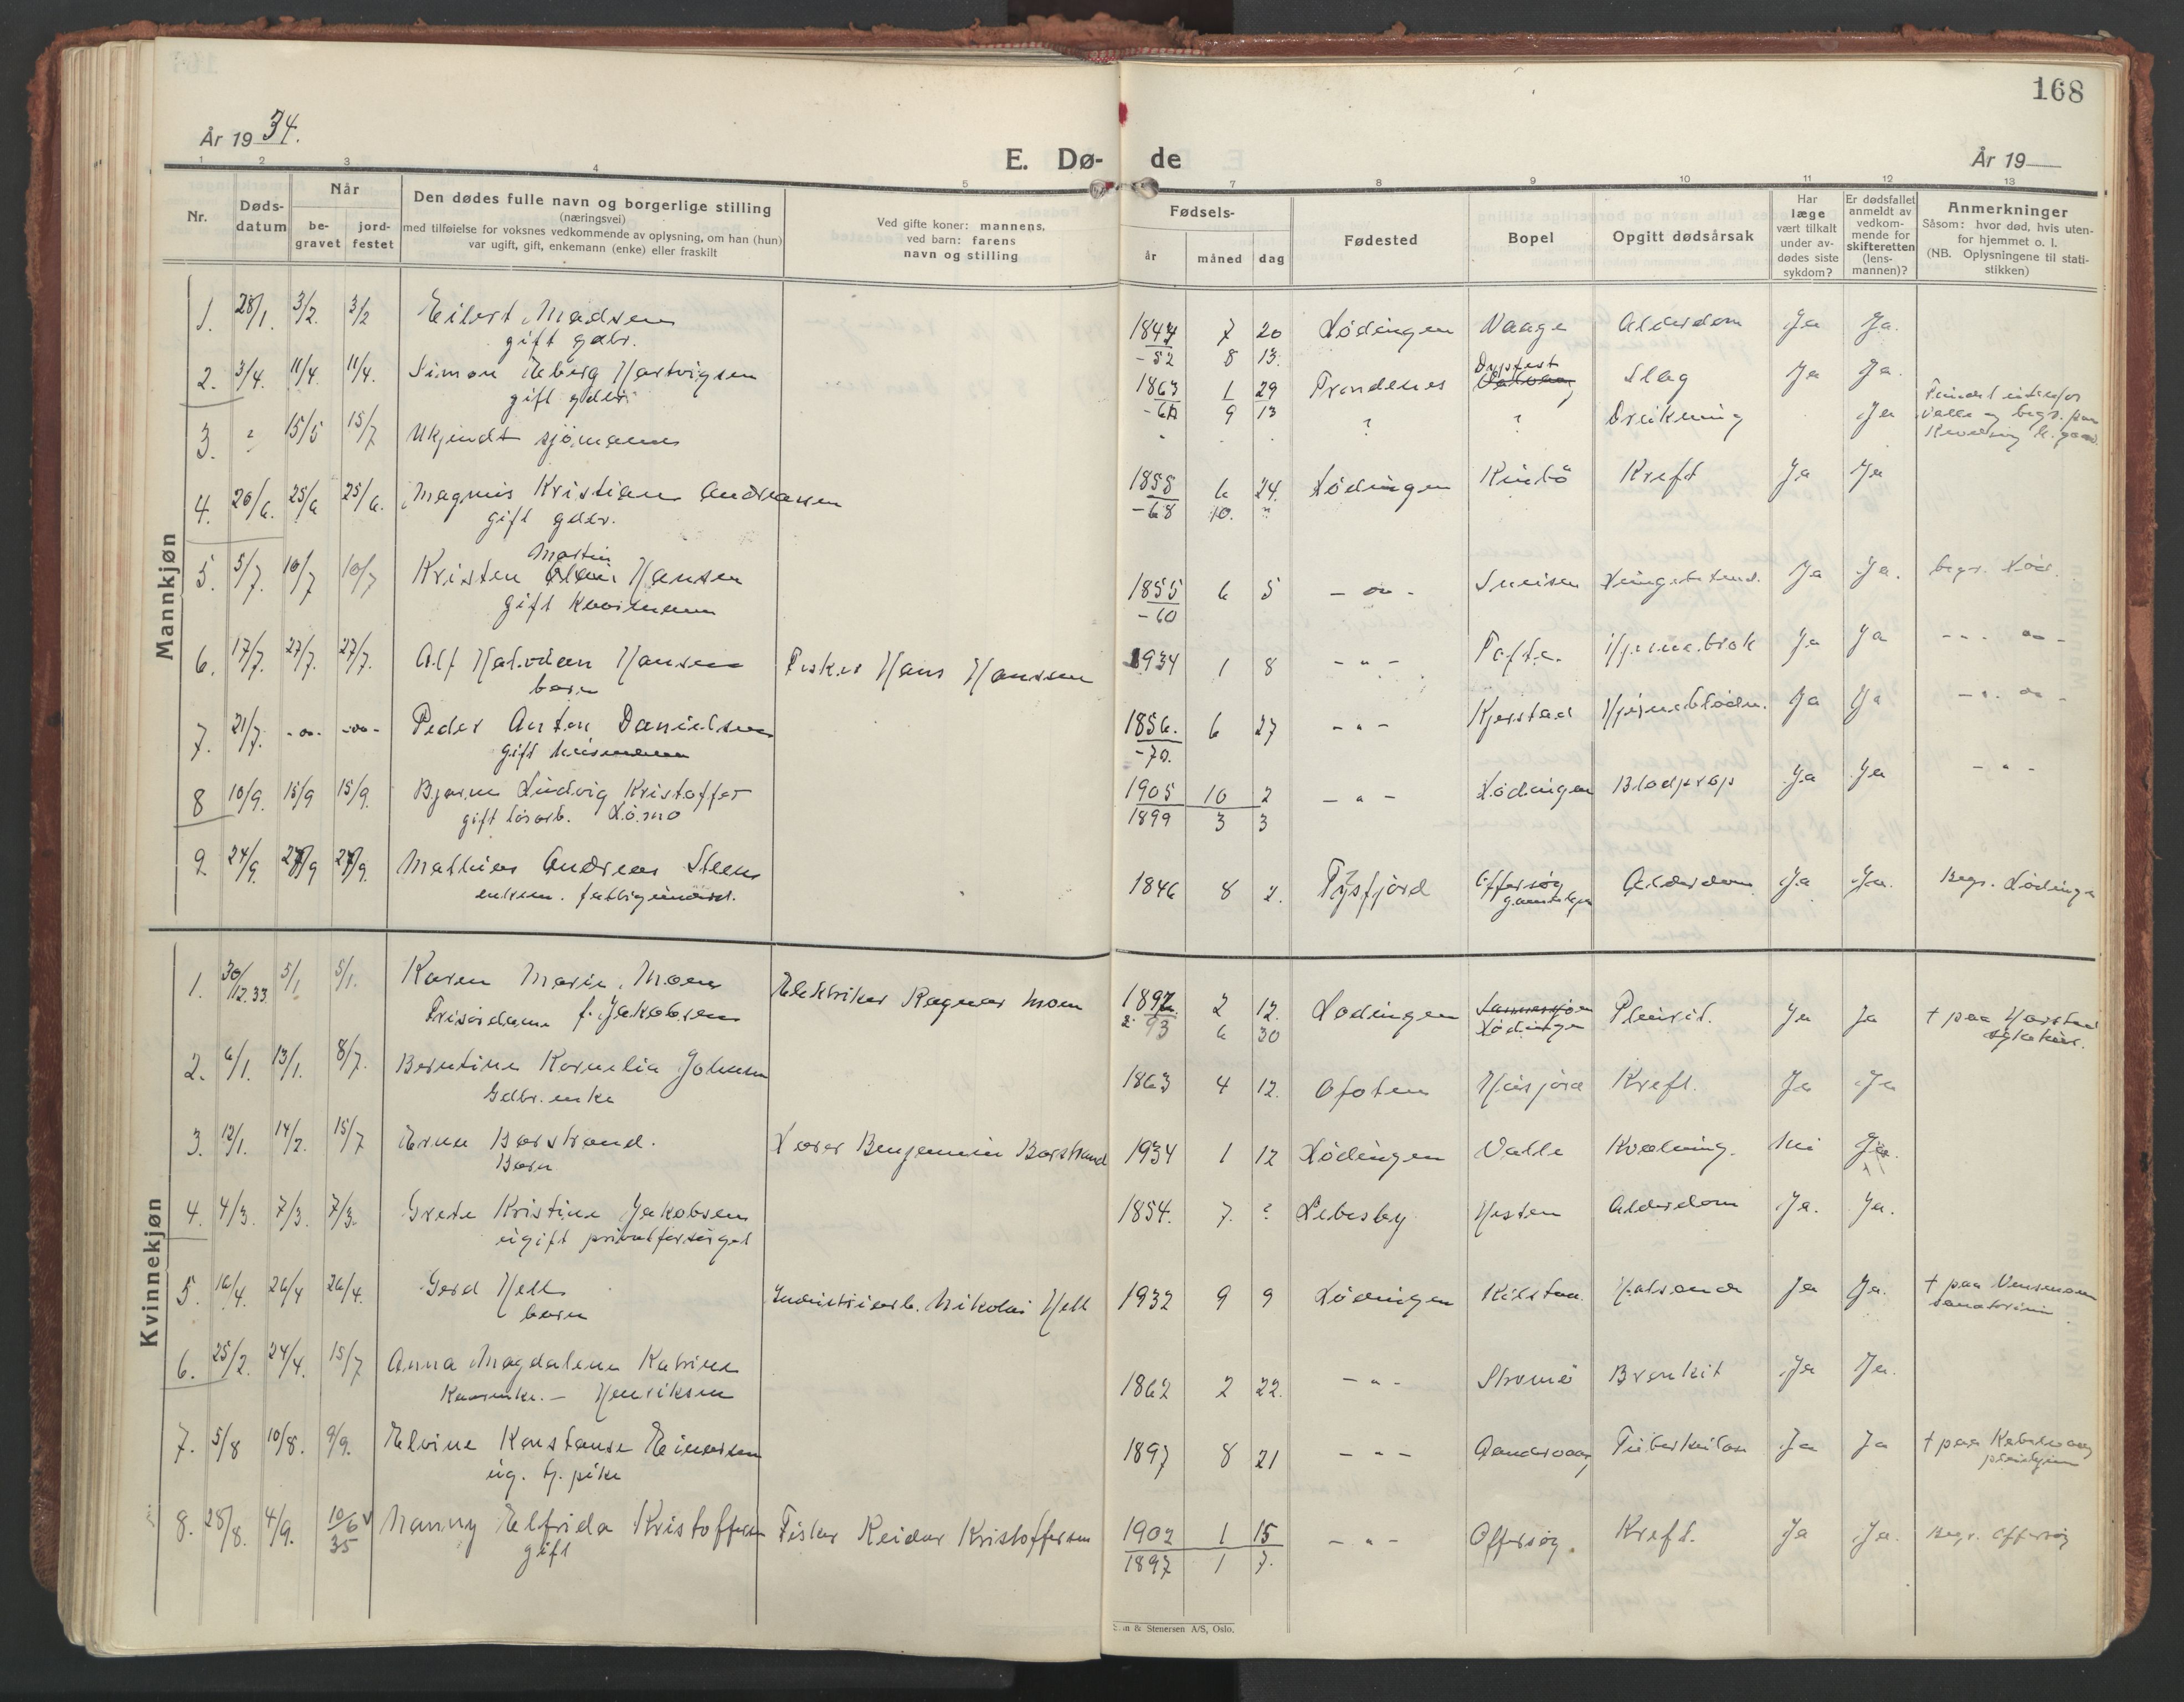 168
År 1934.
E. Dø- de
År 19
1 2 3 4 5 7 8 9 10 11 12 13
Nr.
Døds-
datum
Når
be-
gravet
jord-
festet
Den dødes fulle navn og borgerlige stilling
(næringsvei)
med tilføielse for voksnes vedkommende av oplysning, om han (hun)
var ugift, gift, enkemann (enke) eller fraskilt
Ved gifte koner: mannens,
ved barn: farens
navn og stilling
Fødsels-
år måned dag
Fødested
Bopel
Opgitt dødsårsak
Har
læge
vært tilkalt
under av-
dødes siste
sykdom?
Er dødsfallet
anmeldt av
vedkom-
mende for
skifteretten
(lens-
mannen)?
Anmerkninger
Såsom: hvor død, hvis uten-
for hjemmet o. l.
(NB. Oplysningene til stati-
stikken)
Mannkjøn
1. 28/1. 3/2. 3/2 Eilert Madsen 1847 7 20 Lødingen Vaage Alderdom Ja Ja.
gift gdbr. -52 8 13.
2. 3/4. 11/4. 11/4. Simon Eberg Hartvigsen 1863 1 29 Trondenes Slag Ja Ja.
gift gdbr. 9 13
3. ? 15/5 15/7 Ukjendt sjømann ? ? Drukning Ja
4. 20/6. 25/6 25/6. Magnus Kristian Andreassen 1858 6 24. Lødingen Rinbö Kreft Ja Ja
gift gdbr. -68 10. ?
Martin
5. 5/7. 10/7 10/7 Kristen Hansen 1855 6 5 - oo - Ja Ja. begr. Lød.
gift -60
6. 17/7. 27/7. 27/7. Alf Halvdan Hansen Fisker Hans Hanssen 1934 1 8 - " - Tofte. Hjernebrok Ja Ja - - - oo -
barn
7. 21/7. -oo- -oo- Peder Anton Danielsen 1856. 6 27 - " - Kjerstad Hjerneblødn. Ja Ja - " - oo -
gift husmann -70.
8 10/9. 15/9 15/9. Bjarne Ludvig Kristoffer 1905 10 2 - " - Lødingen Blodprop Ja Ja - " -
gift løsarb. Lømo 1899 3 3
9. 24/9. 27/9 27/9. Mathias Andreas Steen 1846 8 2. Tysfjord Offersøy Alderdom Ja Ja. Begr. Lødingen
enkem. fattigunderst. gamlehjem
Kvinnekjøn
1. 30/12.33 5/1 5/1. Karen Marie Moen Elektriker Ragnar Moen 1892 2 12. Lødingen Plevrit. Ja Ja † paa Harstad
Frisørdame f. Jakobsen 93 6 30 Lødingen sykehus.
2. 6/1. 13/1. 8/7. Berntine Kornelia Johnsen 1863 4 12. Ofoten Husjord Kreft. Ja Ja
Gdbr. enke
3. 12/1. 14/2. 15/7 Erna Barstrand. Lærer Benjamin Barstrand 1934 1 12 Lødingen Valle Kvælning. Nei Ja.
Barn
4. 4/3. 7/3. 7/3. Grete Kristine Jakobsen 1854. 7. ? Lebesby Nesten Alderdom Ja. Ja.
ugift privatforsørget
5. 16/4. 26/4 26/4. Gerd Hell Industriarb. Nikolai Hell 1932 9 9 Lødingen Kilstua. Halsonde Ja Ja. † paa Vensmoen
barn sanatorium
6. 25/2. 24/4. 15/7 Anna Magdalena Katrine 1862 2 22. - " - Strømø Bronkit Ja Ja.
Kaarenke. - Henriksen
7. 5/8 10/8. 9/9. Elvine Konstanse Einarsen 1897 8 21 - " - Tuberkulose Ja Ja † paa Kabelvaag
ug. tj. pike pleiehjem
8. 28/8. 4/9. 10/6 35 Nanny Elfrida Kristoffersen Fisker Reidar Kristoffersen 1902 1 15 - " - Offersøy. Kreft. Ja Ja. Begr. Offersøy
gift 1897 1 7.
& Stenersen A/S, Oslo.